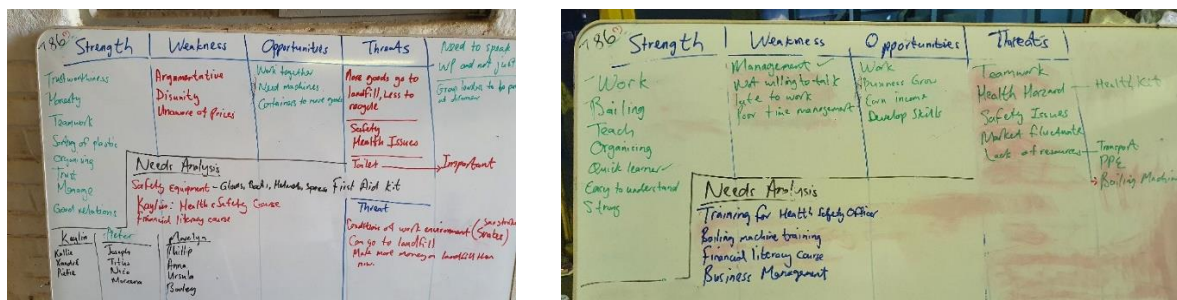 Strength
Weakness
Opportunities
Threats
Need to speak
WP and not just
Group leaders to be
Trustworthiness
Honesty
Teamwork
Sorting of plastic
Organising
Trust
Manage
Good relations
Argumentative
Disunity
Unaware of Prices
Work together
Need machines
Containers to move goods
More goods go to
landfill, Less to
recycle
Safety
Health Issues
Toilet
Important
Needs Analysis
Safety Equipment - Gloves, Masks, Helmets, First Aid kit
Kaylin: Health & Safety Course
Financial literacy course
Threat
Conditions of work environment (Sunstroke
Snakes)
Can go to landfill
Make more money on landfill than
now.
Kaylin
Kallie
Xandré
Pietie
Pieter
Joseph
Titus
Marvelyn
Phillip
Anna
Ursula
Strength
Weakness
Opportunities
Threats
Work
Bailing
Teach
Organising
Quick learner
Easy to understand
Strong
Management
Not willing to talk
Late to work
Poor time management
Work
Business Grow
Earn income
Develop Skills
Teamwork
Health Hazard
Health Kit
Safety Issues
Market fluctuate
Lack of resources
Transport
PPE
Bailing Machine
Needs Analysis
Training for Health Safety Officer
Bailing machine training
Financial literacy course
Business Management